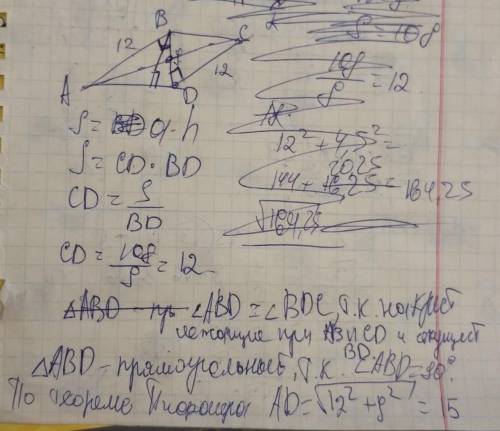 B
C
12
9
12
A
D
S = a·h
S = CD · BD
CD = S / BD
CD = 108 / 9 = 12
108 / 9 = 12
12² + 4,5² =
144 + 20,25 = 164,25
√164,25
△ABD – пр ∠ABD = ∠BDC, т.к. накрест
лежащие при AB и CD и секущей
BD
△ABD – прямоугольный, т.к. ∠ABD = 90°.
По теореме Пифагора AD = √12² + 9² = 15